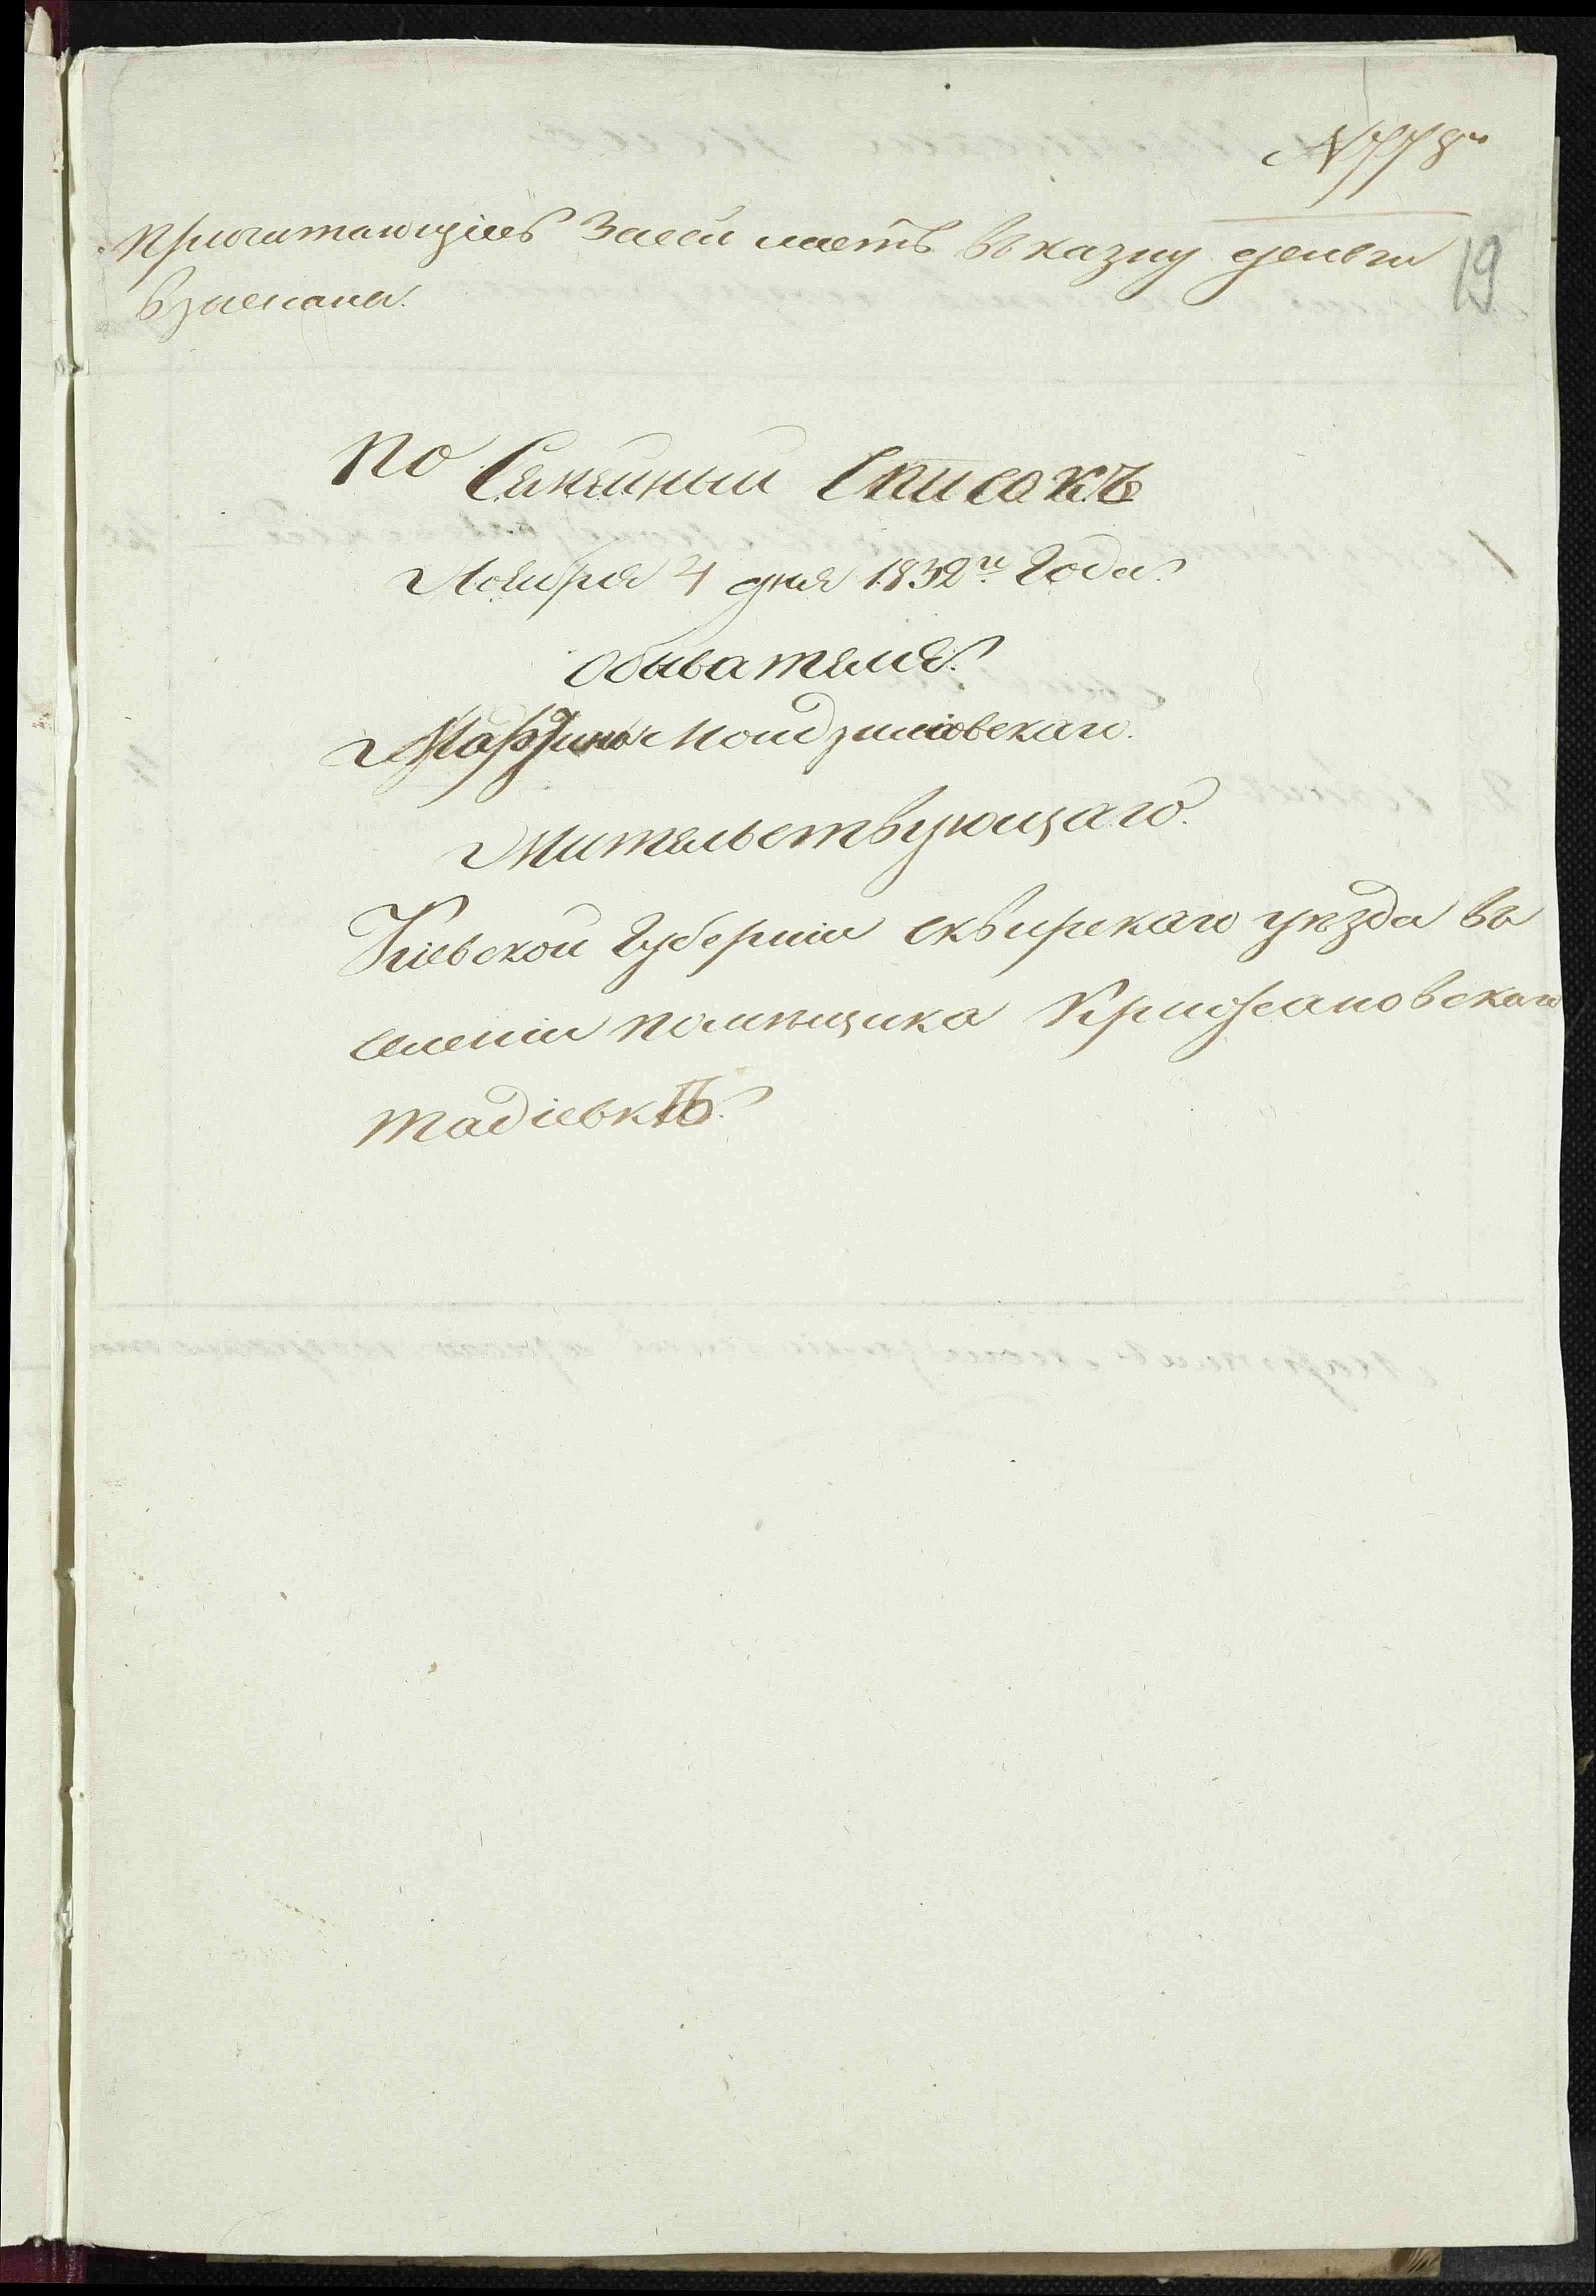 N 778й
Причитающіесъ Засей листъ въ казну деньги
взысканы.
19
По Семейный Списокъ
Ноября 4 дня 1832го Года
Обывателя
Мартина
Жительствующаго
Кіевской Губерніи Сквирскаго уезда въ
селеніи помещика Крижановскаго
Тадіевкѣ